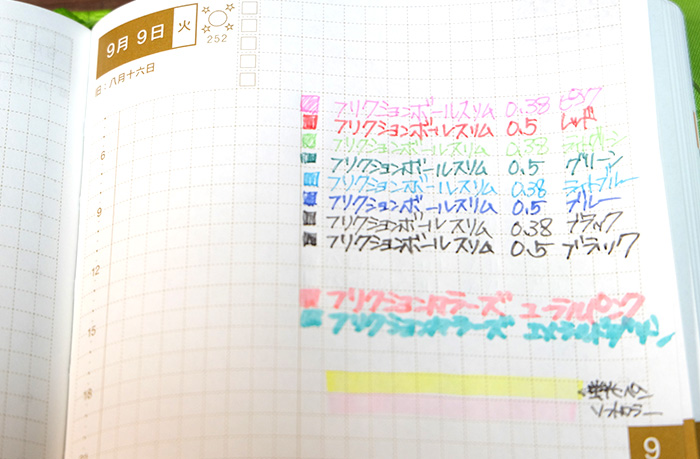 9月 9日 火
252
旧:八月十六日
フリクションボールスリム 0.38 ピンク
フリクションボールスリム 0.5 レッド
フリクションボールスリム 0.38 ライトグリーン
フリクションボールスリム 0.5 グリーン
フリクションボールスリム 0.38 ライトブルー
フリクションボールスリム 0.5 ブルー
フリクションボールスリム 0.38 ブラック
フリクションボールスリム 0.5 ブラック
6
9
12
フリクションカラーズ コーラルピンク
フリクションカラーズ エメラルドグリーン
15
18
蛍光ペン
ソフトカラー
9